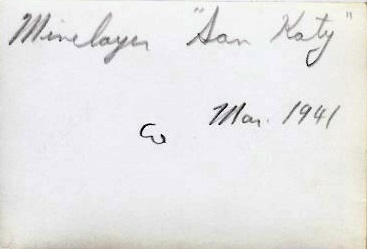 Minelayer "San Katy"
Mar. 1941